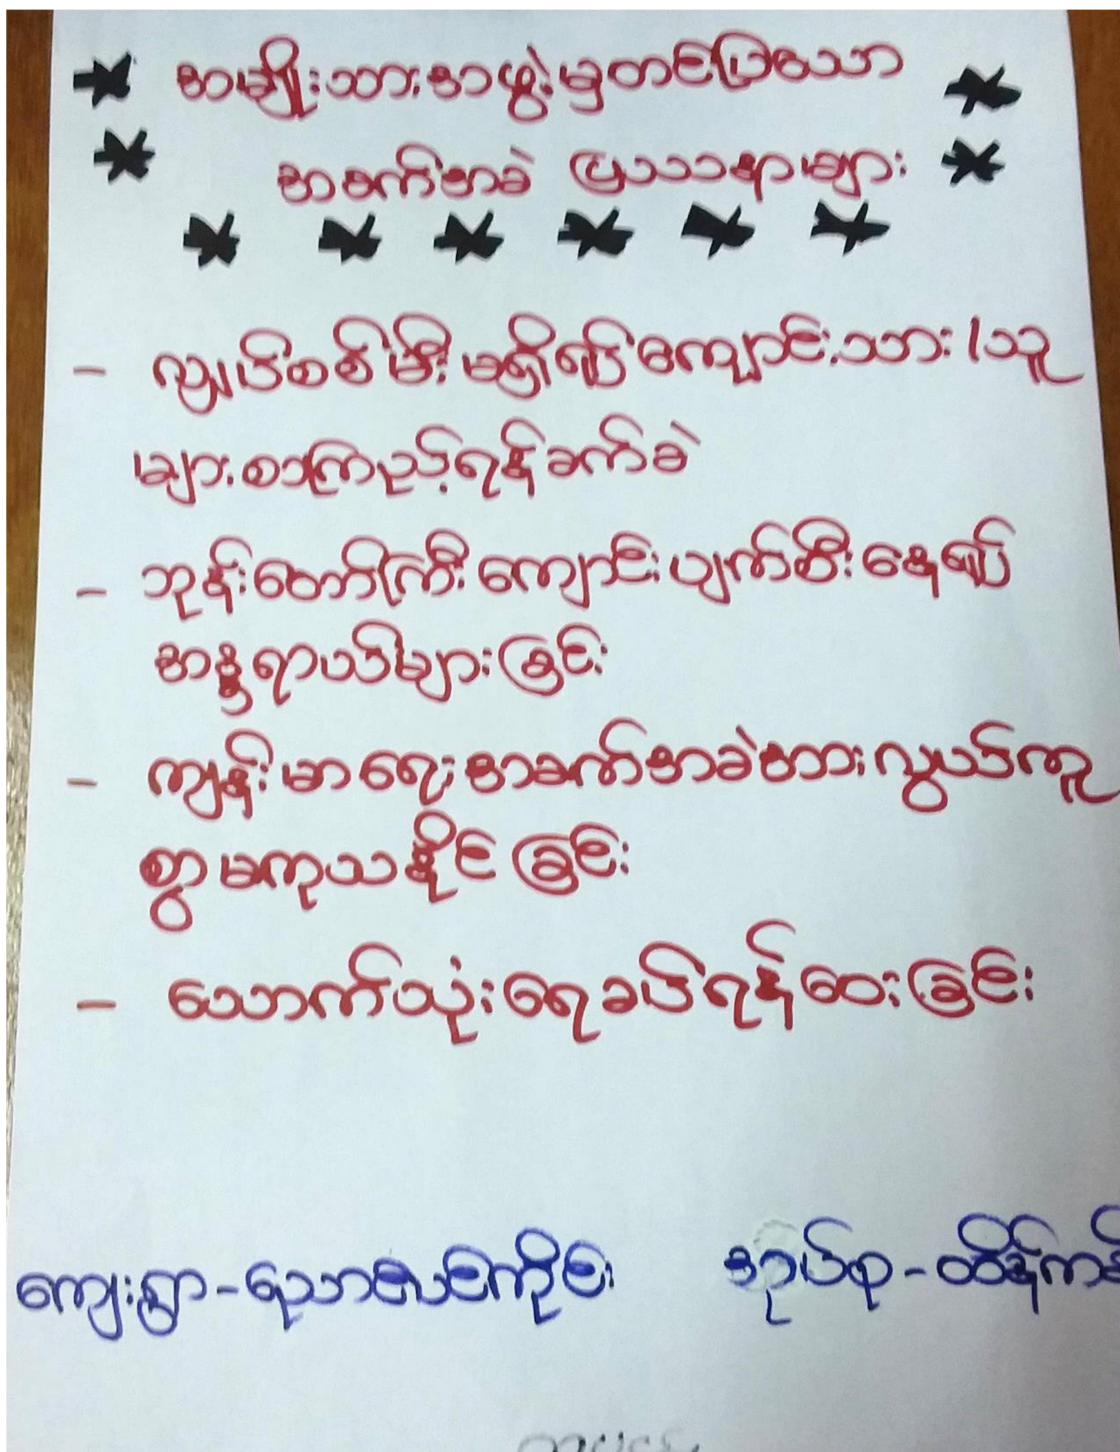 အမျိုးသားအဖွဲ့မှတင်ပြသော
အခက်အခဲ ပြဿနာများ
- လျှပ်စစ်မီး မရှိ၍ ကျောင်းသား/သူ
များ စာကြည့်ရန် ခက်ခဲ
- ဘုန်းတော်ကြီးကျောင်း ပျက်စီးနေ၍
အန္တရာယ်များခြင်း
- ကျန်းမာရေး အခက်အခဲအား လွယ်ကူ
စွာ မကုသနိုင်ခြင်း
- သောက်သုံးရေခပ်ရန် ဝေးခြင်း
ကျေးရွာ - ညောင်ပင်ကိုင်း အုပ်စု - ထိန်ကင်